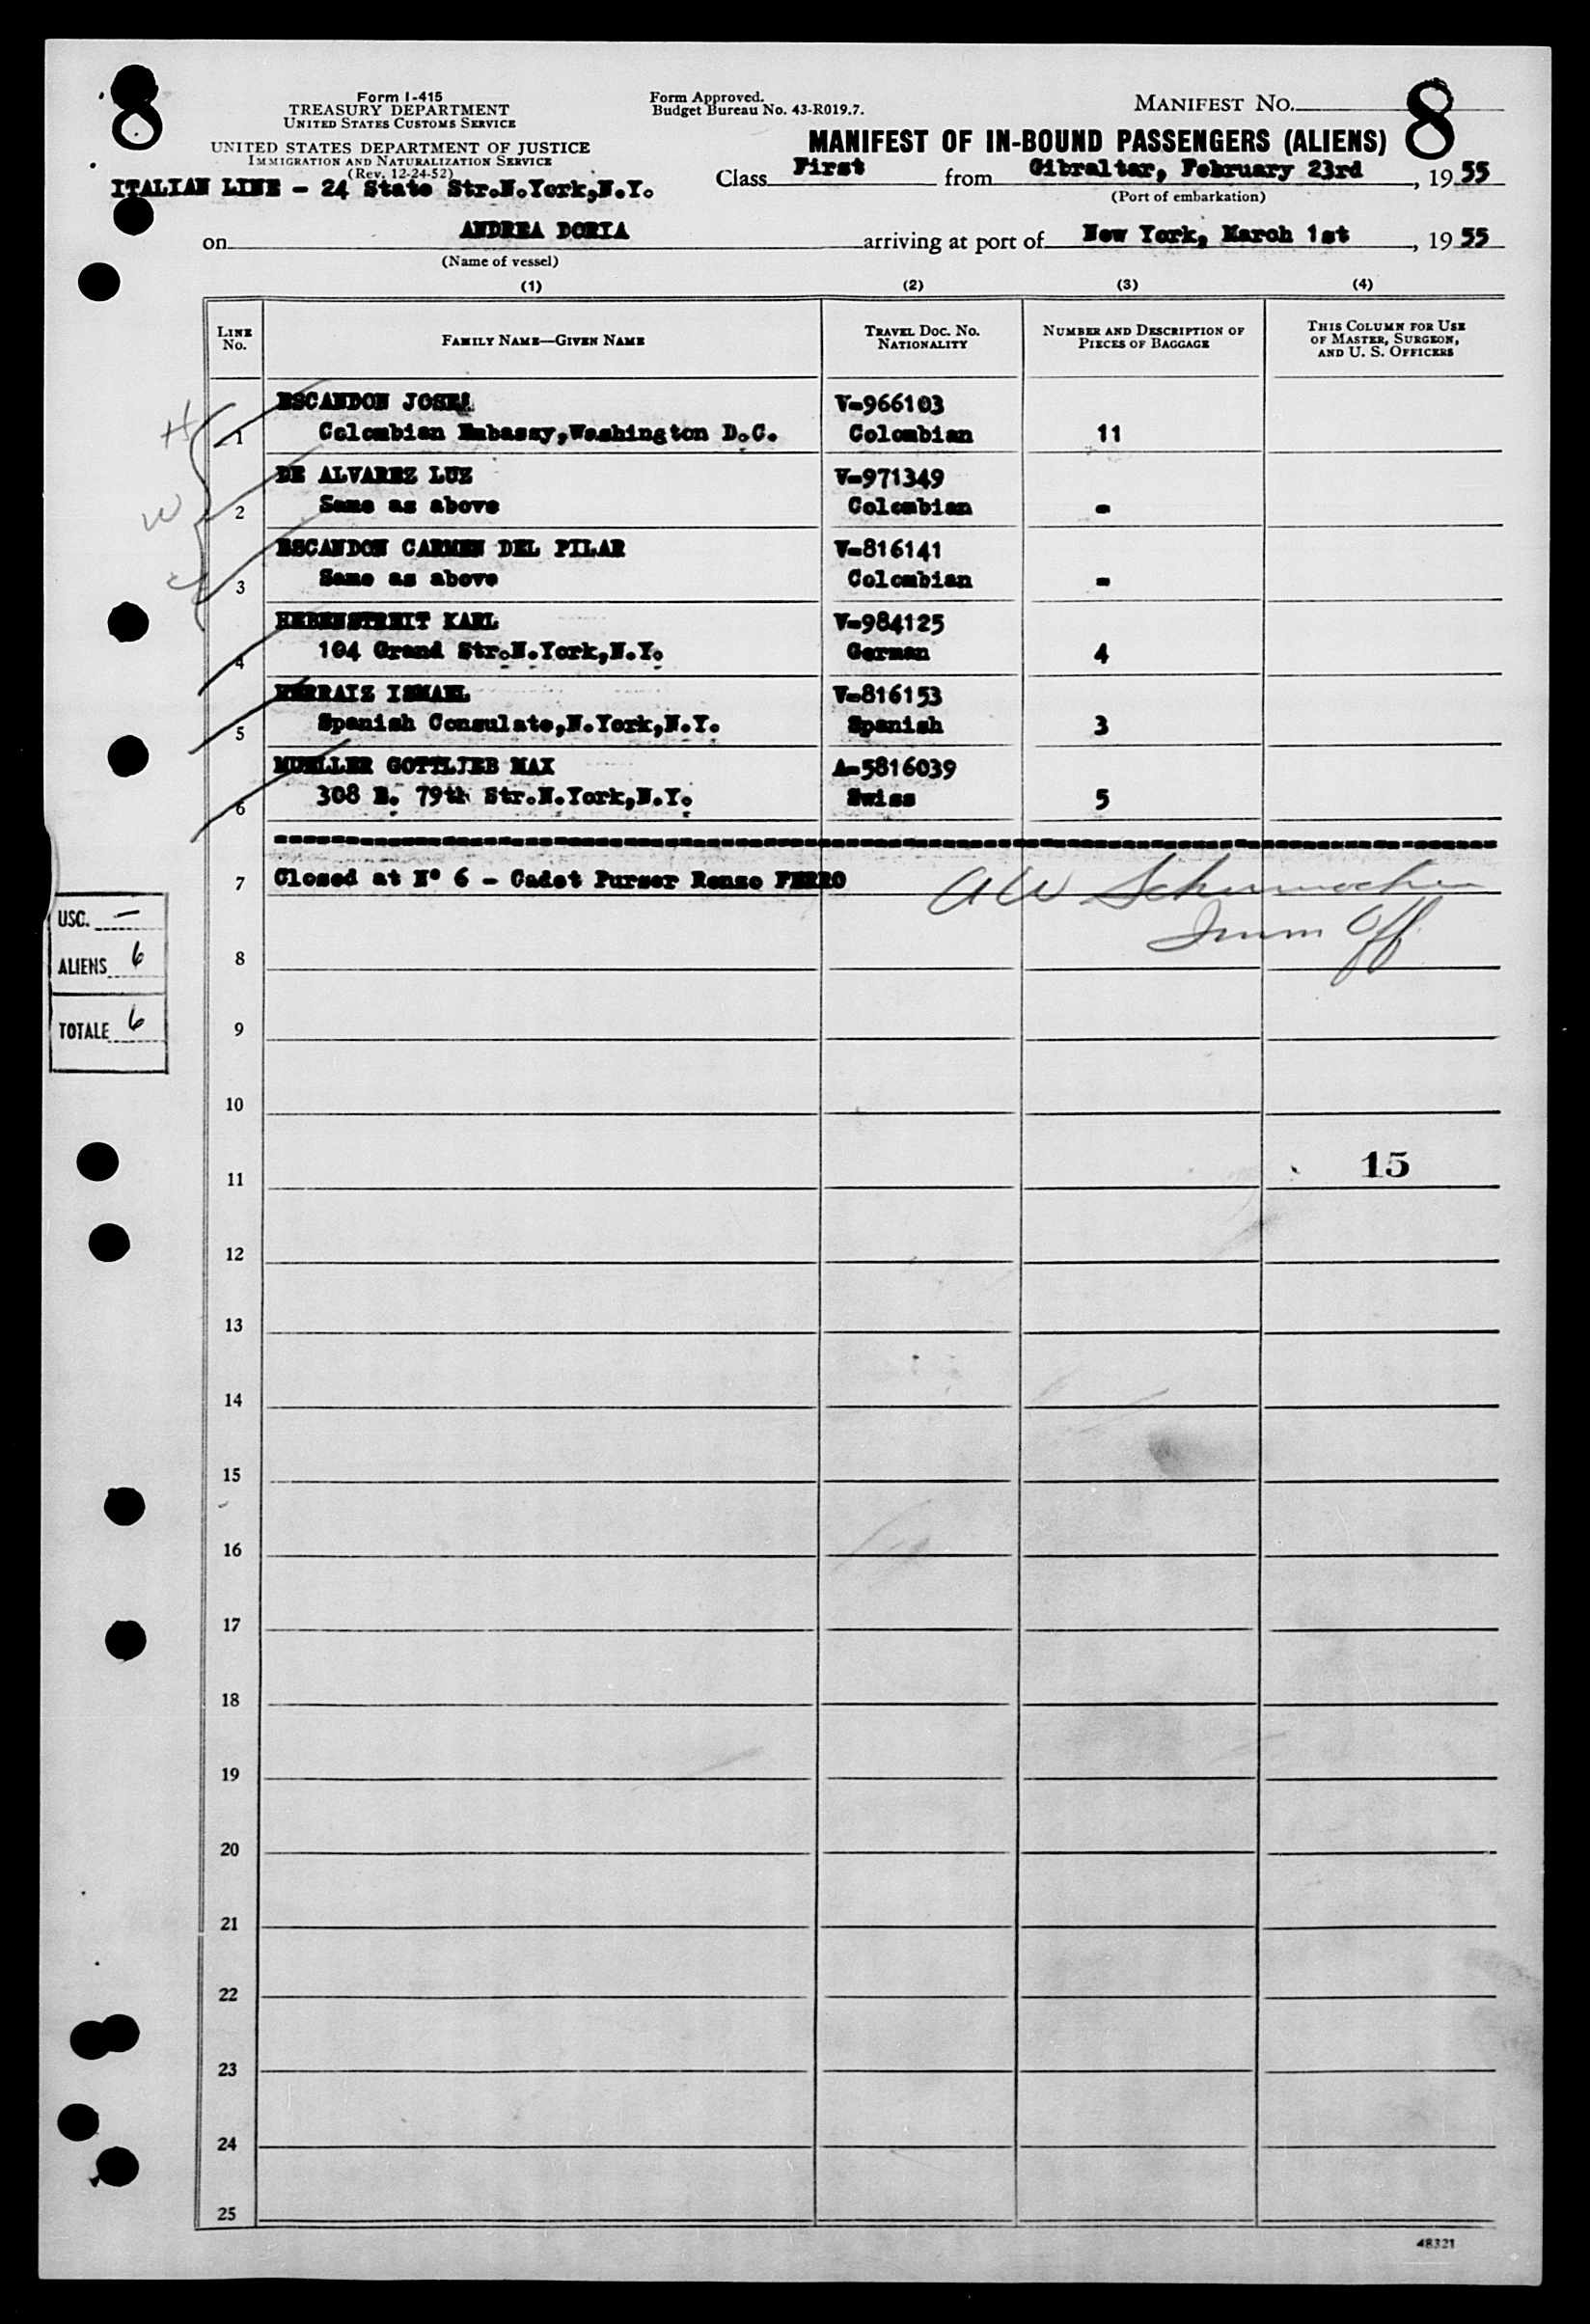 8
Form I-415
TREASURY DEPARTMENT
UNITED STATES CUSTOMS SERVICE
UNITED STATES DEPARTMENT OF JUSTICE
IMMIGRATION AND NATURALIZATION SERVICE
(Rev. 12-24-52)
Form Approved.
Budget Bureau No. 43-R019.7.
MANIFEST NO. 8
MANIFEST OF IN-BOUND PASSENGERS (ALIENS)
ITALIAN LINE - 24 State Str.N.York,N.Y.
Class First from Gibraltar, February 23rd, 19 55
(Port of embarkation)
on ANDREA DORIA arriving at port of New York, March 1st, 19 55
(Name of vessel)
(1) (2) (3) (4)
LINE No. FAMILY NAME—GIVEN NAME TRAVEL DOC. NO. NATIONALITY NUMBER AND DESCRIPTION OF PIECES OF BAGGAGE THIS COLUMN FOR USE OF MASTER, SURGEON, AND U. S. OFFICERS
ESCANDON JOSE V-966103
H 1 Colombian Embassy,Washington D.C. Colombian 11
DE ALVAREZ LUZ V-971349
W 2 Same as above Colombian -
ESCANDON CARMEN DEL PILAR V-816141
3 Same as above Colombian -
HEBENSTREIT KARL V-984125
4 104 Grand Str.N.York,N.Y. German 4
HERRAIZ ISMAEL V-816153
5 Spanish Consulate,N.York,N.Y. Spanish 3
MUELLER GOTTLJEB MAX A-5816039
6 308 E. 79th Str.N.York,N.Y. Swiss 5
7 Closed at N° 6 - Cadet Purser Renzo FERRO AW Schumacher
Imm Off
USC. —
ALIENS 6
TOTALE 6
8
9
10
11 15
12
13
14
15
16
17
18
19
20
21
22
23
24
25
48321